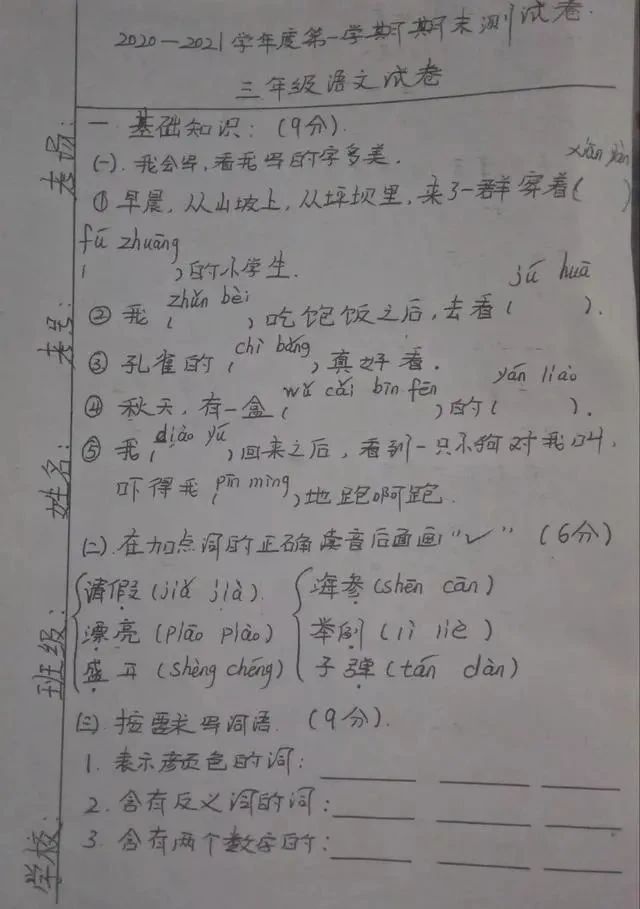 2020—2021学年度第一学期期末测试卷.
三年级语文试卷
一 基础知识:(9分).
(一). 我会写,看我写的字多美.
xiān yàn
① 早晨,从山坡上,从坪坝里,来了一群穿着( )
fú zhuāng
( )的小学生.
zhǔn bèi jú huā
② 我( )吃饱饭之后,去看( ).
chì bǎng
③ 孔雀的( )真好看.
wǔ cǎi bīn fēn yán liào
④ 秋天,有一盒( )的( ).
diào yú
⑤ 我( )回来之后,看到一只小狗对我叫,
pīn mìng
吓得我( )地跑啊跑.
(二).在加点词的正确读音后面画"✓" (6分)
请假(jiǎ jià) 海参(shēn cān)
漂亮(piāo piào) 举例(lì liè)
盛开(shèng chéng) 子弹(tán dàn)
(三)按要求写词语.(9分).
1. 表示颜色的词:
2. 含有反义词的词:
3. 含有两个数字的:
考场:
考号:
姓名:
班级:
学校: